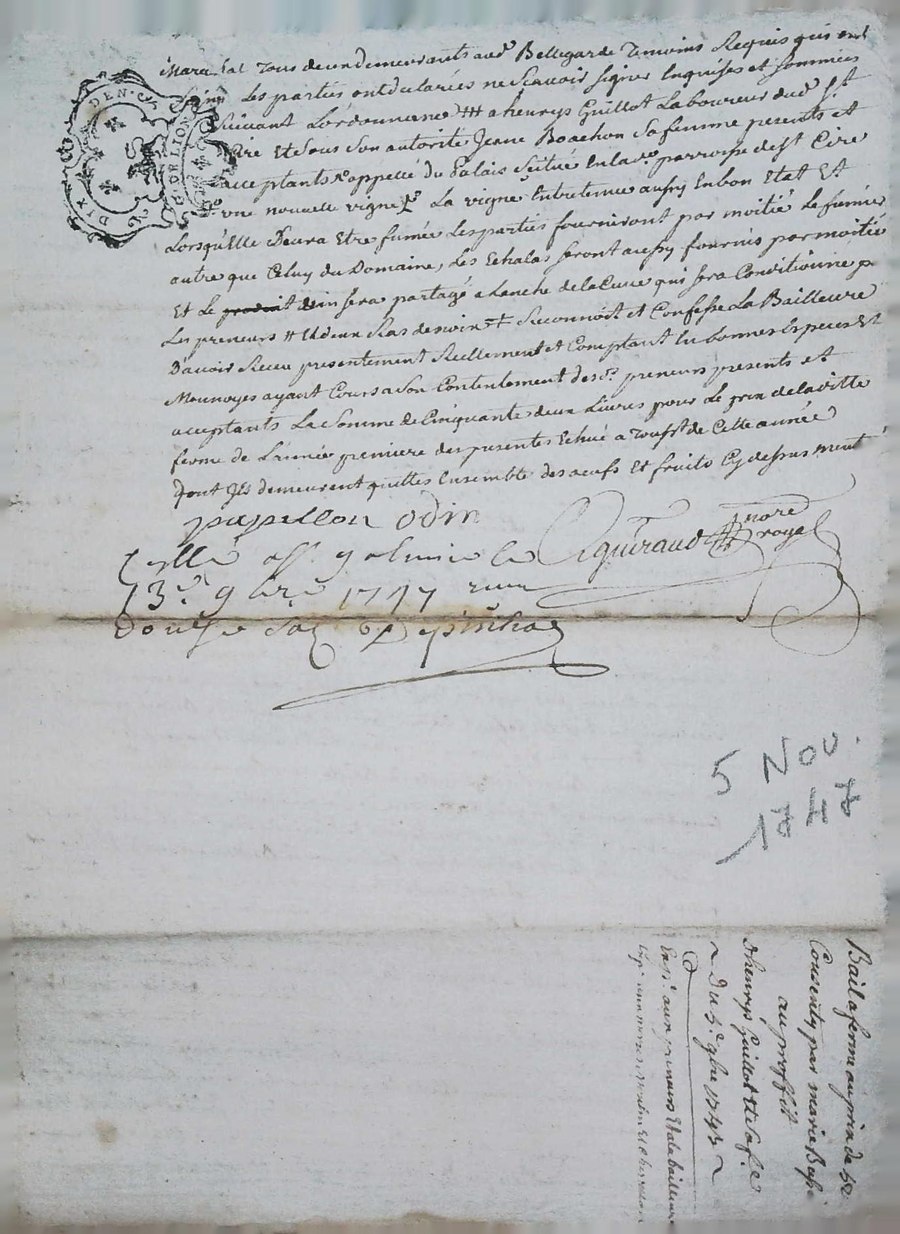 Marechal tous deux demeurants aud Bellegarde Temoins Requis qui ont
signé Les parties ont declarées ne Scavoir signer Enquises et sommées
suivant L'ordonnance a henrys Guillot Laboureur dud St
Cire Et Sous Son autorité Jeane Boachon Sa femme presents et
acceptants appellé du Palais Scitué En lad parroisse de St Cire
une nouvelle vigne La vigne Entretenue aussy En bon Etat Et
Lorsqu'Elle Devra Etre fumée Les parties fourniront par moitié Le fumier
autre que Celuy du Domaine, Les Echalas seront aussy fournis par moitié
Et Le produit vin sera partagé a Lanche de la Cuve qui sera Conditionné pr
Les preneurs Et deux Ras de vin Reconnoit et Confesse La Bailleure
Davoir Receu presentement Reellement et Comptant En bonnes Especes Et
Monnoyes ayant Cours a Son Contentement desd. preneurs presents et
acceptants La Somme de Cinquante deux Livres pour Le prix de laditte
ferme de L'année premiere des presentes Echue a Touss.t de Cette année
Dont Ils demeurent quittes Ensemble des oeufs Et fruits Cy dessus ment
papillon odin
Gueraud nore
royal
Cxllé a st galmier le
13e 9bre 1747 recu
douze sols
DIX DEN.
G. DE LION
5 NOV.
1747
Bail a ferme au prix de 52
Consenty par marie Basse
au proffit
d'henrys Guillot Et Sa fe
Du 5e 9bre 1747
Exp. aux preneurs Et a la bailleure